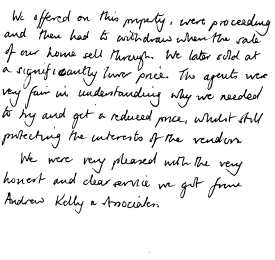 We offered on this property, were proceeding
and then had to withdraw when the sale
of our home fell through. We later sold at
a significantly lower price. The agents were
very fair in understanding why we needed
to try and get a reduced price, whilst still
protecting the interests of the vendor.
We were very pleased with the very
honest and clear service we got from
Andrew Kelly & Associates.